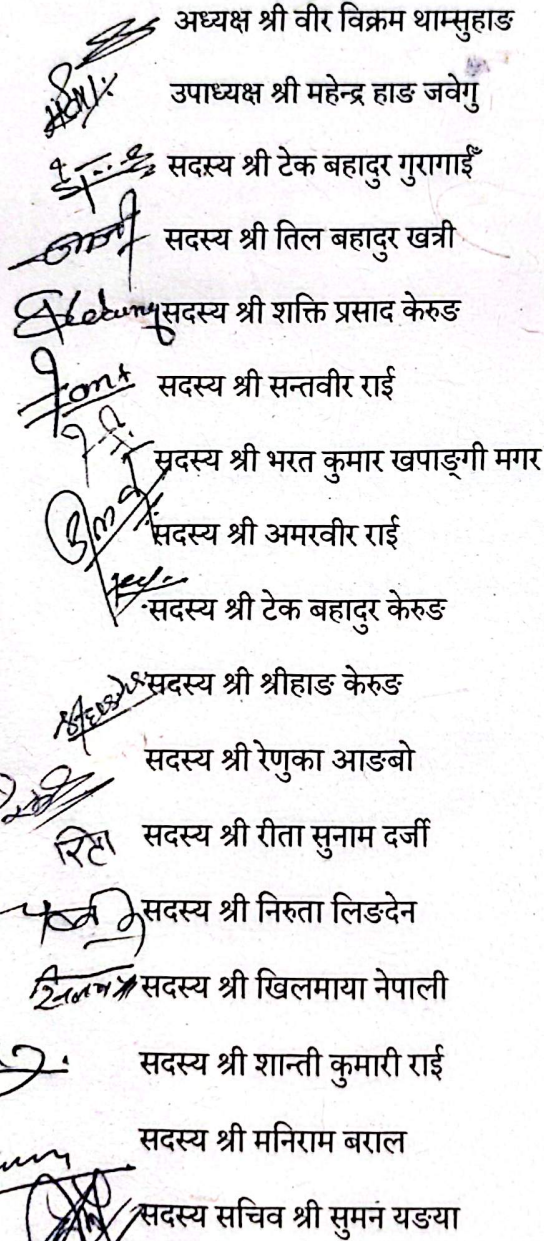 अध्यक्ष श्री वीर विक्रम थाम्सुहाङ
उपाध्यक्ष श्री महेन्द्र हाङ जवेगु
सदस्य श्री टेक बहादुर गुरागाईँ
सदस्य श्री तिल बहादुर खत्री
सदस्य श्री शक्ति प्रसाद केरुङ
सदस्य श्री सन्तवीर राई
सदस्य श्री भरत कुमार खपाङ्गी मगर
सदस्य श्री अमरवीर राई
सदस्य श्री टेक बहादुर केरुङ
सदस्य श्री श्रीहाङ केरुङ
सदस्य श्री रेणुका आङबो
रिटा सदस्य श्री रीता सुनाम दर्जी
सदस्य श्री निरुता लिङदेन
सदस्य श्री खिलमाया नेपाली
सदस्य श्री शान्ती कुमारी राई
सदस्य श्री मनिराम बराल
सदस्य सचिव श्री सुमन यङया